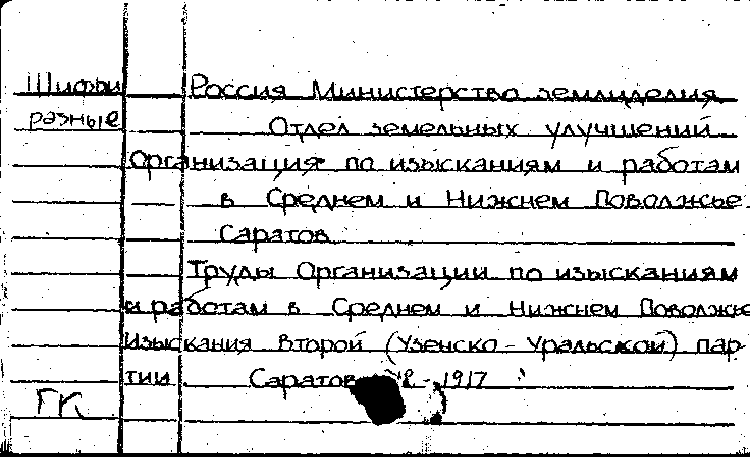 Шифры
разные
Россия Министерство земледелия
Отдел земельных улучшений
Организация по изысканиям и работам
в Среднем и Нижнем Поволжье
Саратов
Труды Организации по изысканиям
и работам в Среднем и Нижнем Поволжье
Изыскания второй (Узенско-Уральской) пар-
тии Саратов 1917
ГК